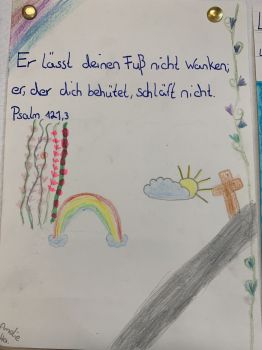 Er lässt deinen Fuß nicht wanken;
er, der dich behütet, schläft nicht.
Psalm 121,3